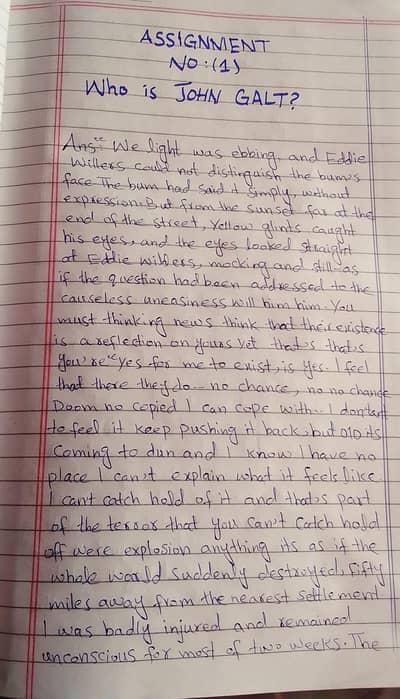 ASSIGNMENT
NO:(1)
Who is JOHN GALT?
Ans:" We light was ebbing, and Eddie
Willers could not distinguish the bum's
face The bum had said it simply, without
expression. But from the sunset far at the
end of the street, yellow glints caught
his eyes, and the eyes looked straight
at Eddie willers, mocking and still as
if the question had been addressed to the
causeless uneasiness will him him. You
must thinking news think that their existence
is a reflection on yours yet that's that's
yes for me to exist, is yes. I feel
that there they do no chance, no no change
Doom no copied I can cope with. I don't
to feel it keep pushing it back, but its
Coming to dun and I know I have no
place I can't explain what it feels like
I can't catch hold of it and that's part
of the terror that you can't catch hold
off were explosion anything its as if the
whole world suddenly destroyed. Fifty
miles away from the nearest settlement
I was badly injured and remained
unconscious for most of two weeks. The